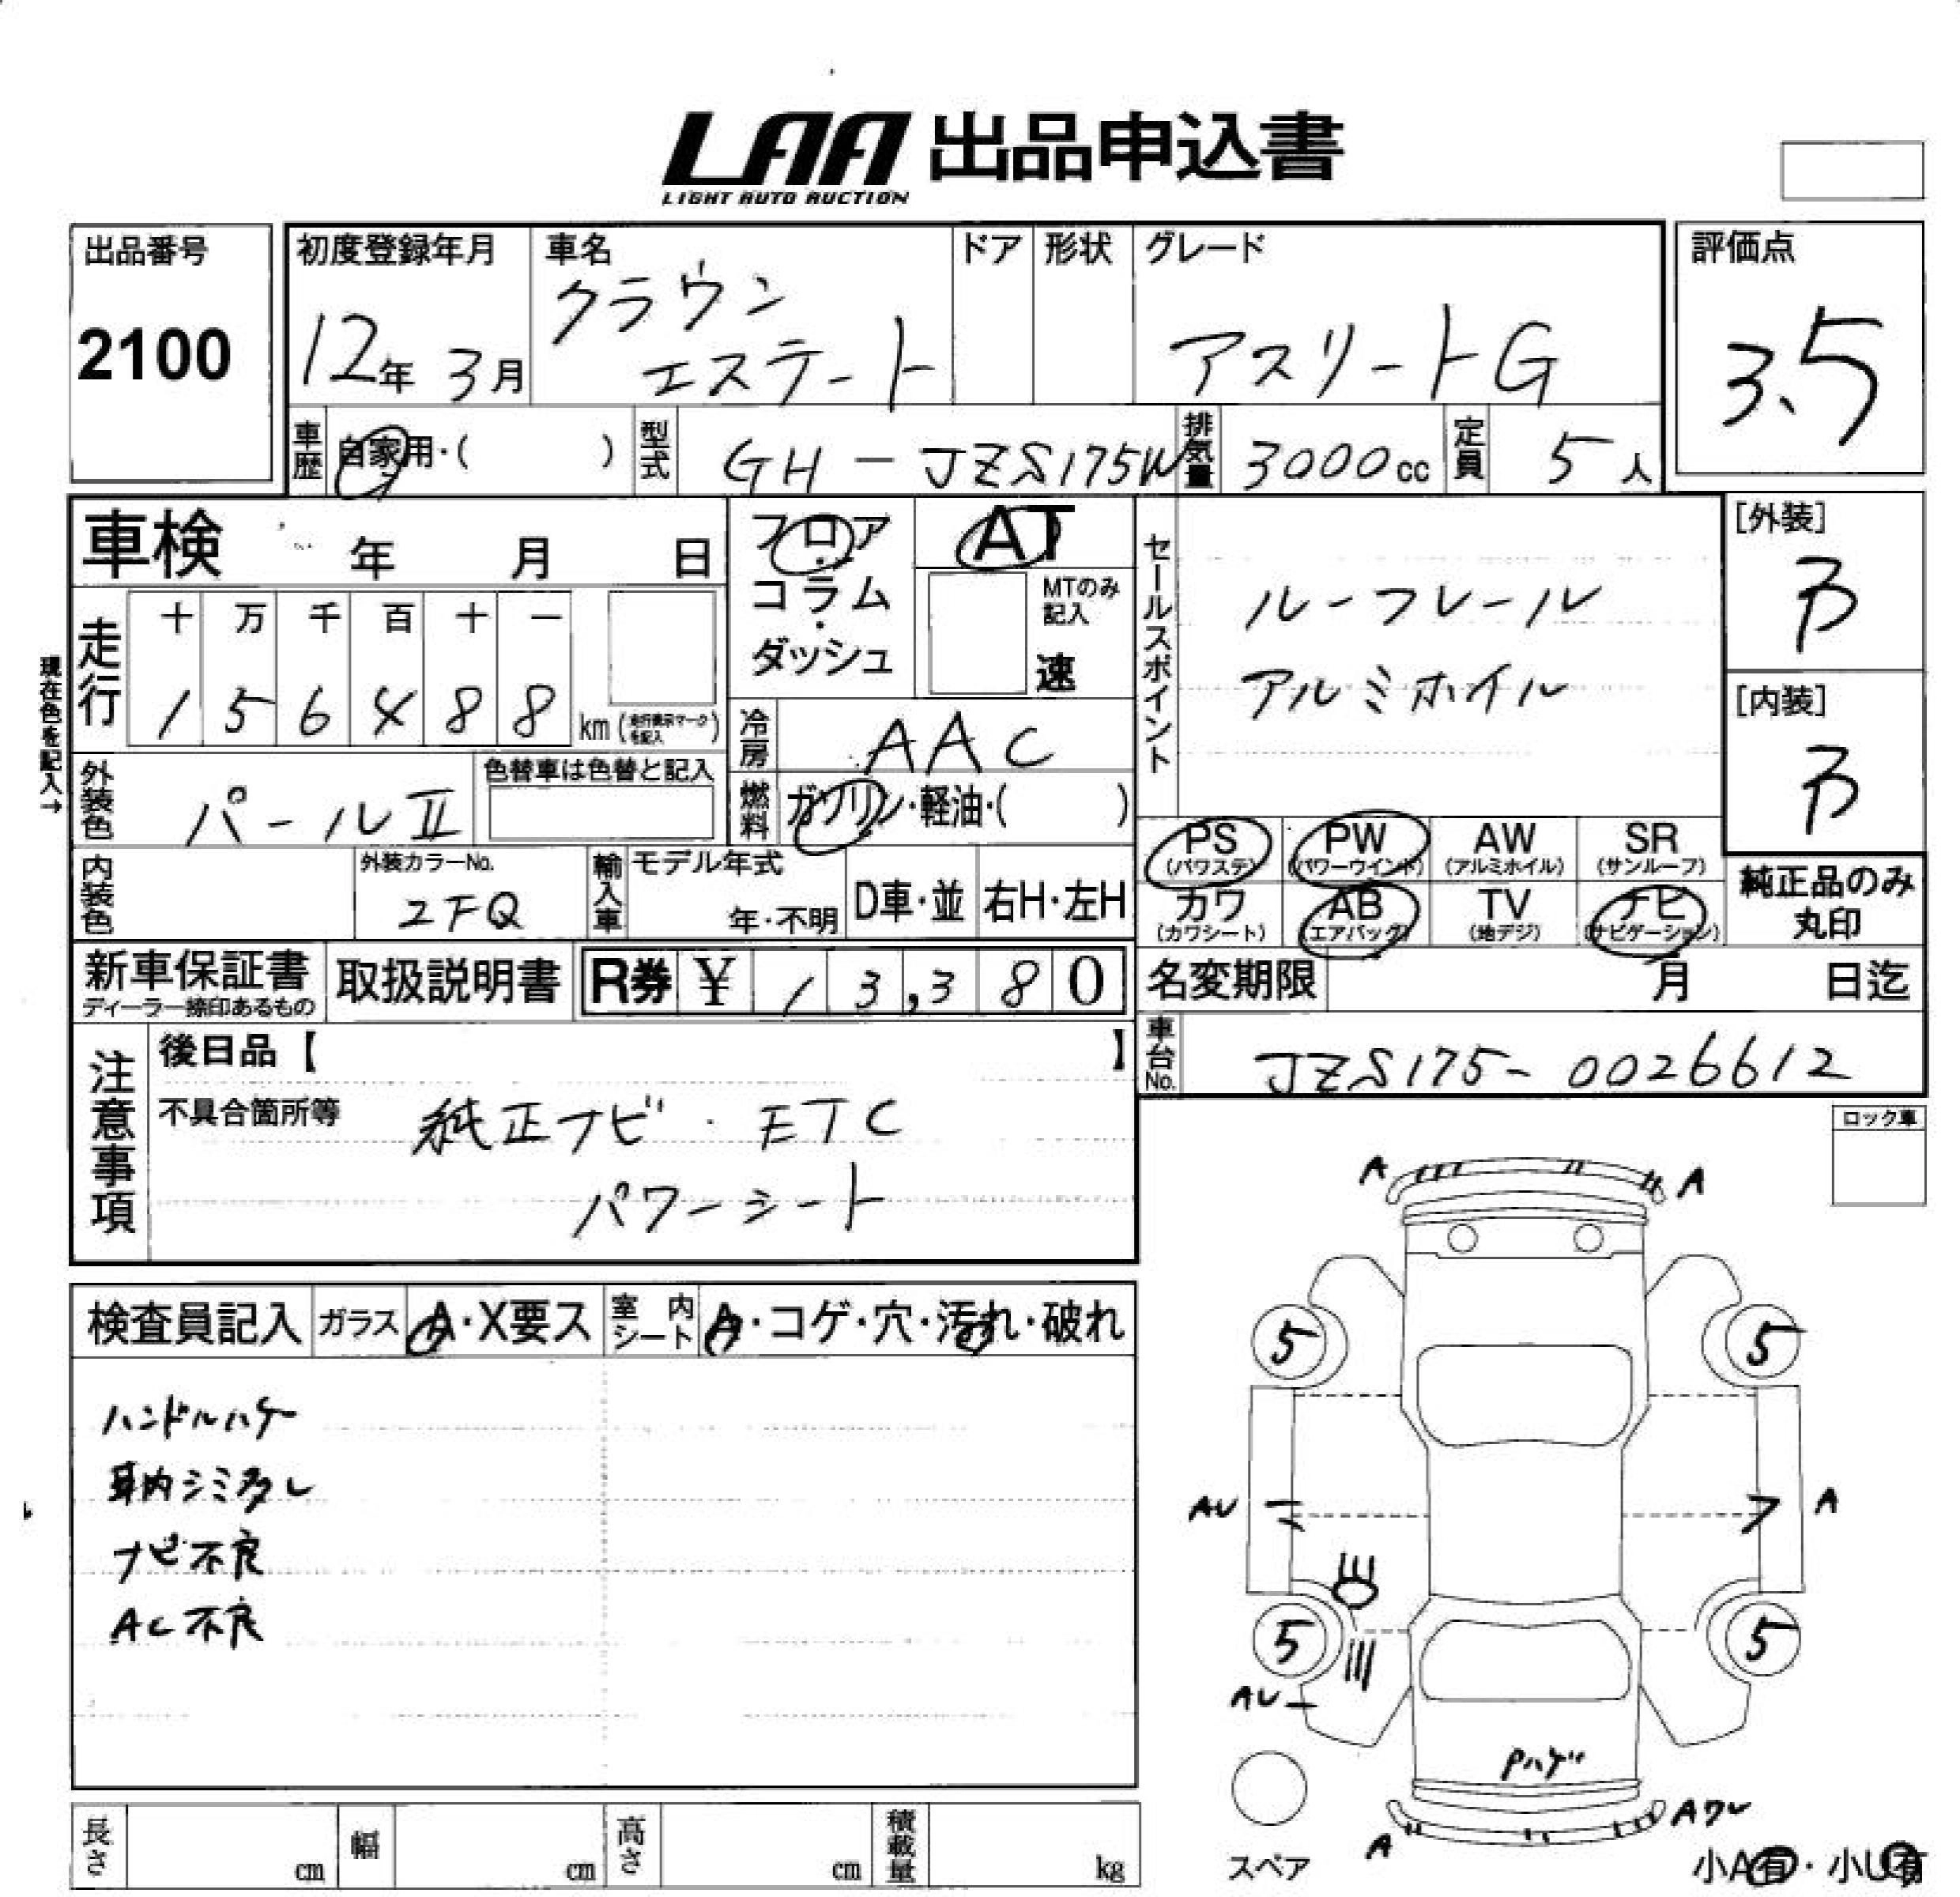 LAA 出品申込書
LIGHT AUTO AUCTION
出品番号
2100
初度登録年月
12年 3月
車名
クラウン
エステート
ドア
形状
グレード
アスリートG
評価点
3.5
車歴
自家用・( )
型式
GH-JZS175W
排気量
3000cc
定員
5人
車検 年 月 日
フロア
・
コラム
・
ダッシュ
AT
MTのみ
記入
速
セールスポイント
ルーフレール
アルミホイル
[外装]
B
[内装]
B
現在色を記入→
走行
十 万 千 百 十 一
1 5 6 4 8 8 km(走行表示マークを記入)
冷房
AAC
外装色
パールⅡ
色替車は色替と記入
燃料
ガソリン・軽油・( )
PS
(パワステ)
PW
(パワーウインド)
AW
(アルミホイル)
SR
(サンルーフ)
カワ
(カワシート)
AB
(エアバッグ)
TV
(地デジ)
ナビ
(ナビゲーション)
純正品のみ
丸印
内装色
外装カラーNo.
2FQ
輸入車
モデル年式
年・不明
D車・並
右H・左H
新車保証書
ディーラー捺印あるもの
取扱説明書
R券 ¥ 13,380
名変期限 月 日迄
車台No.
JZS175-0026612
注意事項
後日品【 】
不具合箇所等
純正ナビ・ETC
パワーシート
ロック車
検査員記入
ガラス
A・X要ス
室内
シート
A・コゲ・穴・汚れ・破れ
ハンドルハゲ
車内シミ多し
ナビ不良
AC不良
A A
5 5
AU A
5 5
AU
Pハゲ
A Aワレ
スペア
小A有・小U有
長さ cm
幅 cm
高さ cm
積載量 kg